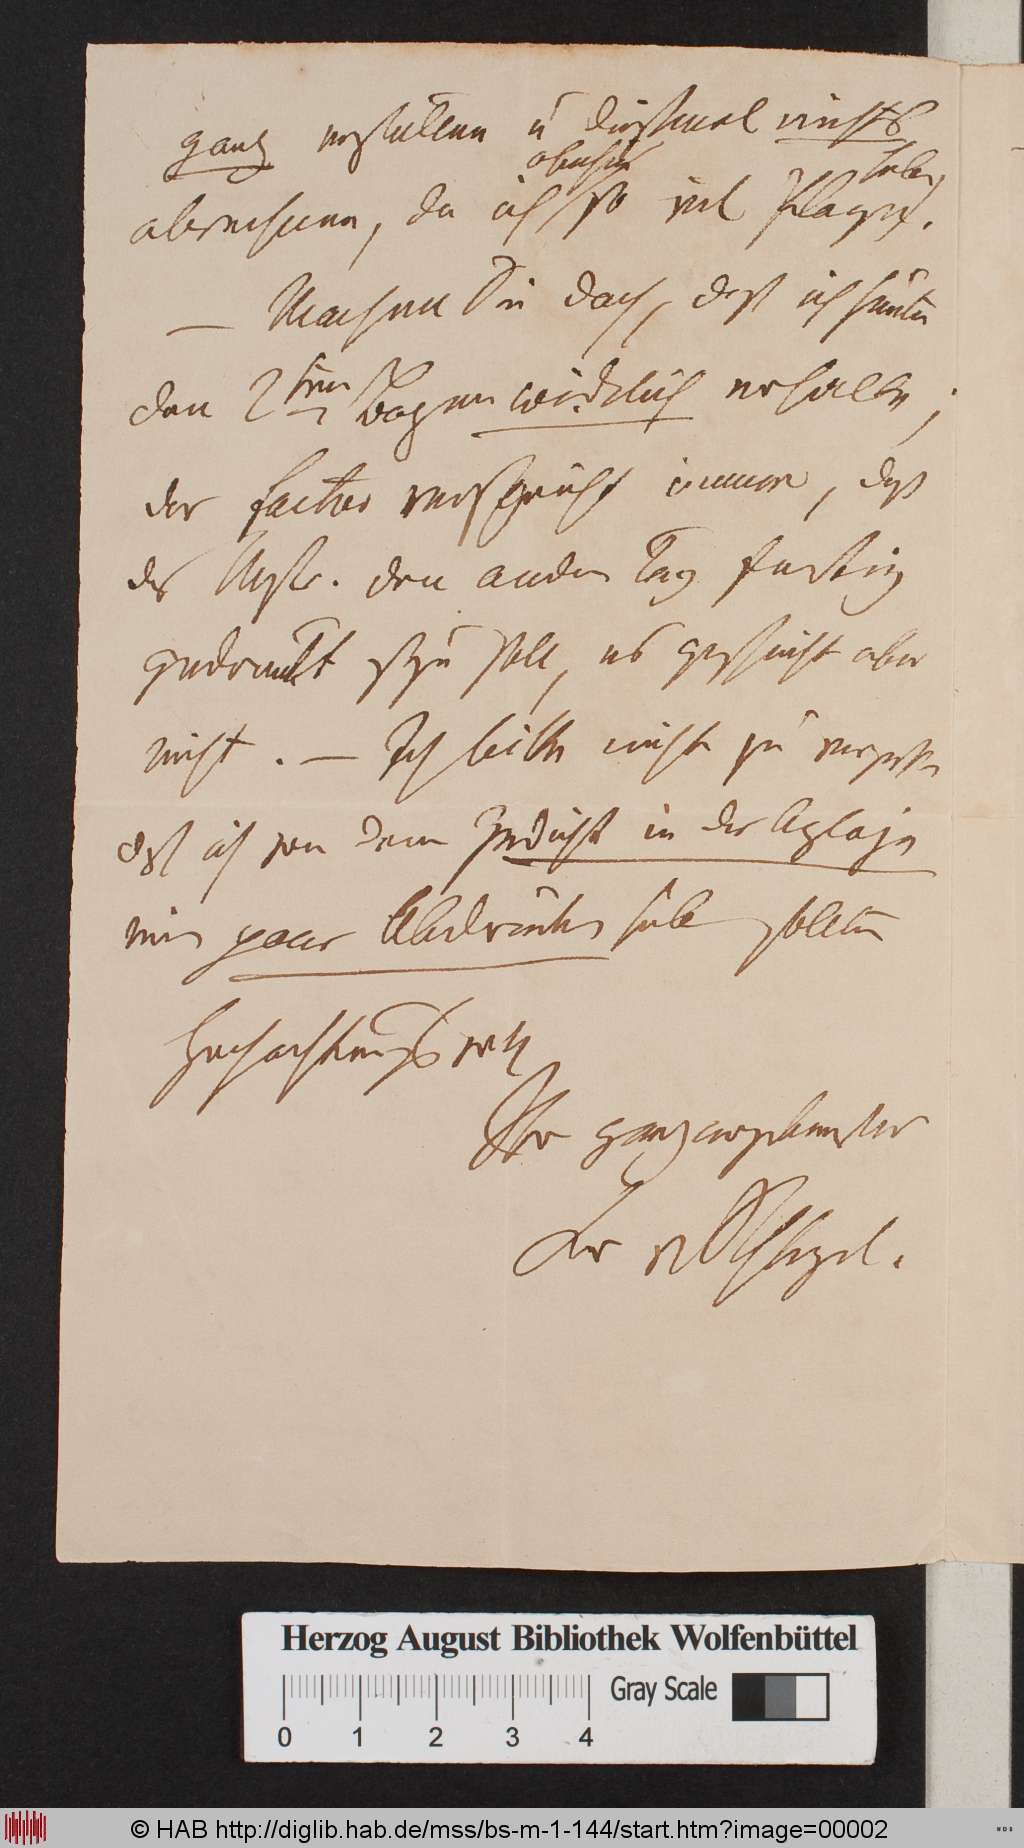 ganz erstatten u dießmal nichts
abrechnen, da ich ohnehin so viel Plage habe.
— Machen Sie doch, daß ich heute
den 2ten Bogen wirklich erhalte;
der Factor verspricht immer, daß
das Mspt. den andern Tag fertig
gedruckt seyn soll, es geschieht aber
nicht. — Ich bitte nicht zu vergessen
daß ich von dem Gedicht in der Aglaja
ein paar Abdrücke haben sollte
Hochachtungsvoll
Ihr ganz ergebenster
Fr v Schlegel.
Herzog August Bibliothek Wolfenbüttel
Gray Scale
0 1 2 3 4
© HAB http://diglib.hab.de/mss/bs-m-1-144/start.htm?image=00002